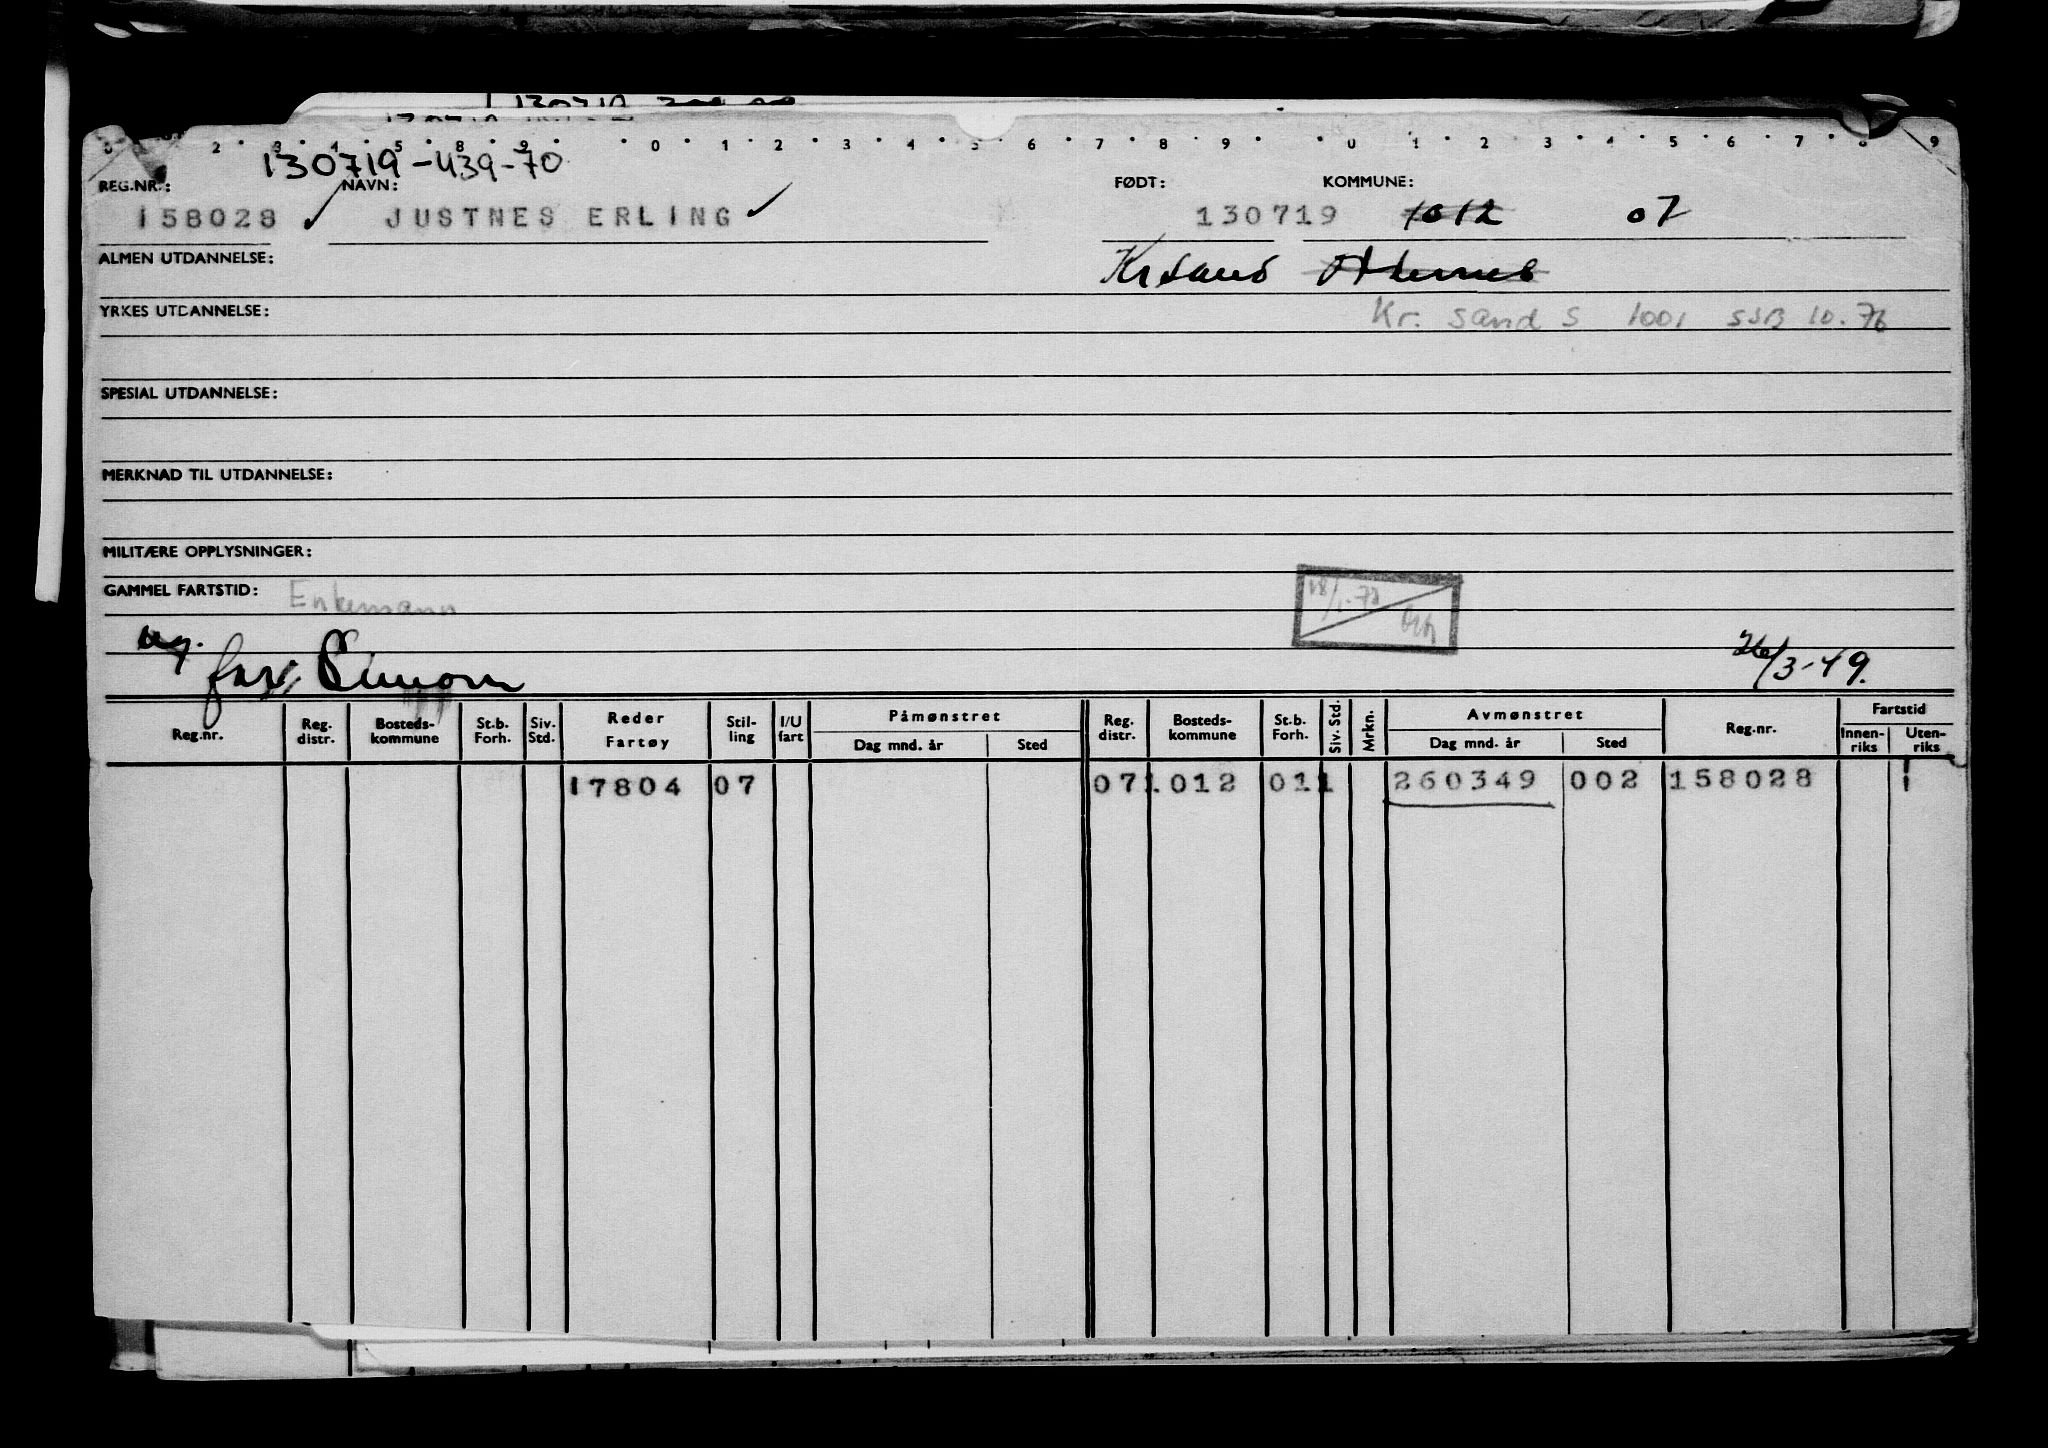 130719-439-70
REG.NR.: NAVN: FØDT: KOMMUNE:
158028 ✓ JUSTNES ERLING ✓ 130719 1012 07
ALMEN UTDANNELSE: Kr sand
YRKES UTDANNELSE: Kr. sand S 1001 SSB 10.76
SPESIAL UTDANNELSE:
MERKNAD TIL UTDANNELSE:
MILITÆRE OPPLYSNINGER:
GAMMEL FARTSTID: Enkemann
far: Simon 26/3-49.
Reg.nr. Reg. distr. Bosteds-kommune St.b. Forh. Siv. Std. Reder Fartøy Stil-ling I/U fart Påmønstret Dag mnd. år Sted Reg. distr. Bosteds-kommune St.b. Forh. Siv. Std. Mrkn. Avmønstret Dag mnd. år Sted Reg.nr. Fartstid Innen-riks Uten-riks
17804 07 07 1012 011 260349 002 158028